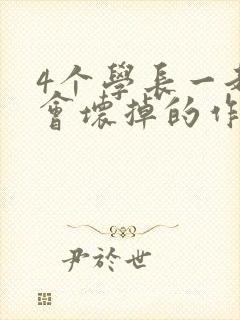 4个學長一
會壞掉的作
尹於世